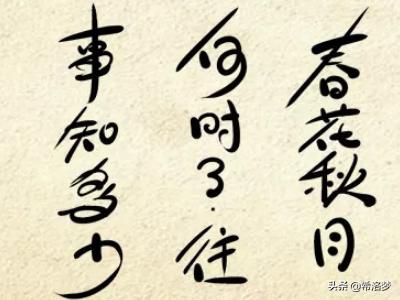 春花秋月
何时了·往
事知多少
头条 @希洛梦